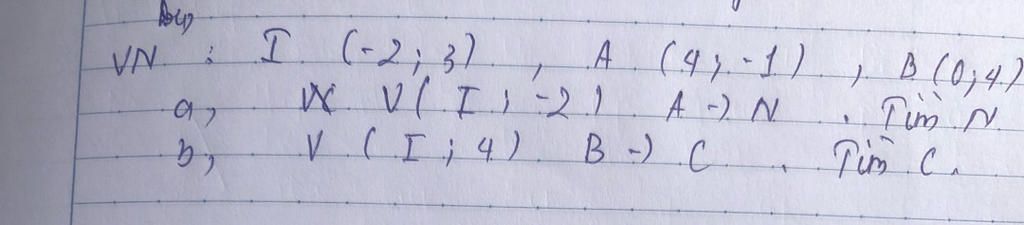 VN : I (-2; 3) , A (4; -1) , B (0; 4)
a, V ( I ; -2 ) A -> N . Tìm N
b, V ( I ; 4 ) B -> C . Tìm C.